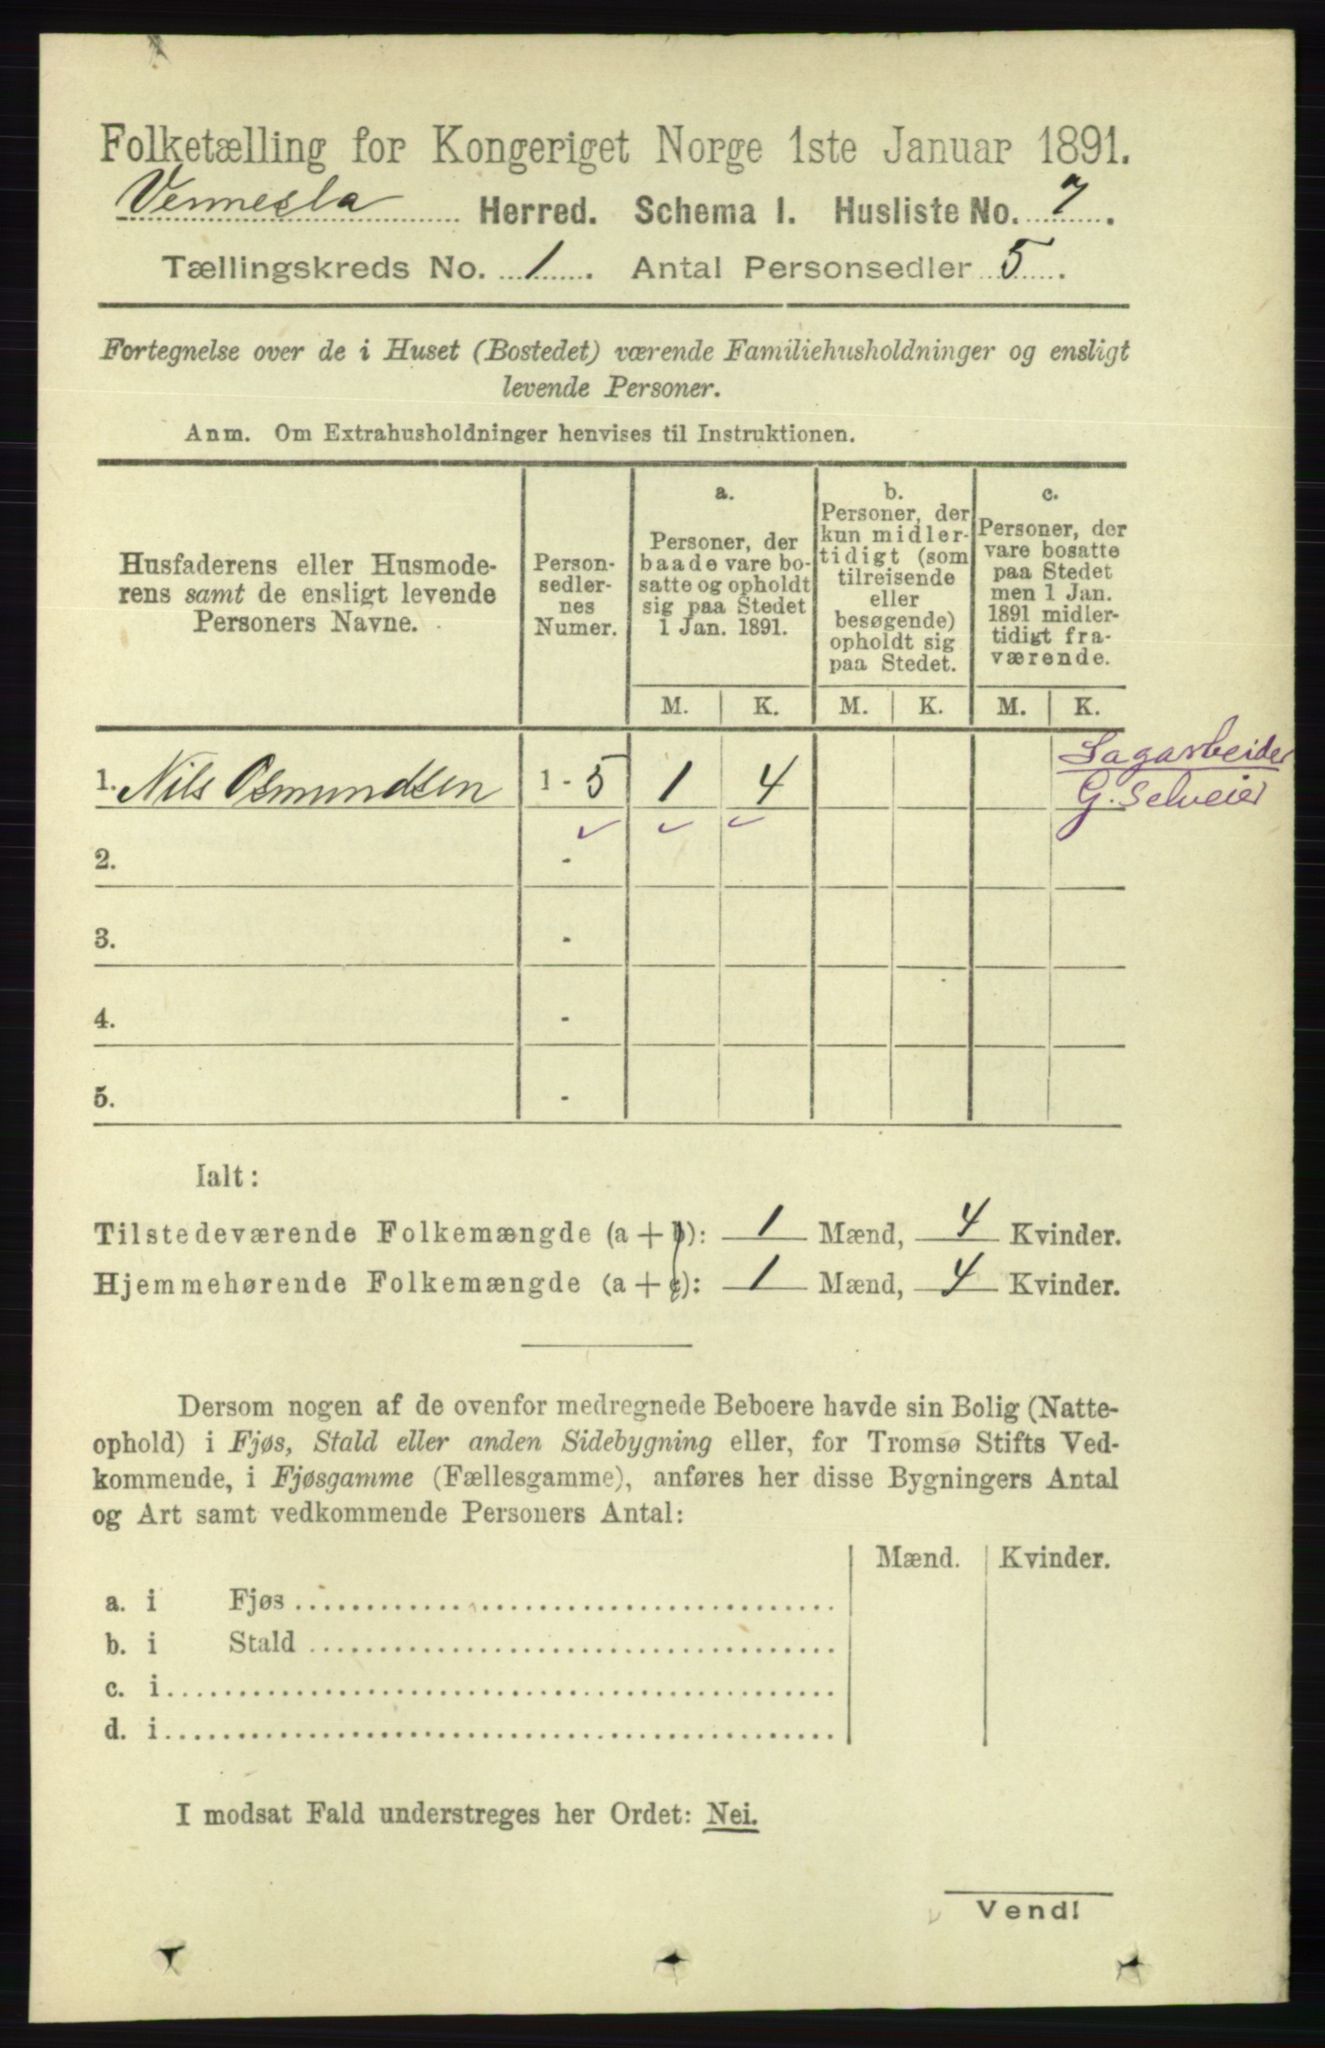 Folketælling for Kongeriget Norge 1ste Januar 1891.
Vennesla Herred. Schema I. Husliste No. 7.
Tællingskreds No. 1. Antal Personsedler 5.
Fortegnelse over de i Huset (Bostedet) værende Familiehusholdninger og ensligt
levende Personer.
Anm. Om Extrahusholdninger henvises til Instruktionen.
Husfaderens eller Husmode-
rens samt de ensligt levende
Personers Navne.
Person-
sedler-
nes
Numer.
a.
Personer, der
baade vare bo-
satte og opholdt
sig paa Stedet
1 Jan. 1891.
b.
Personer, der
kun midler-
tidigt (som
tilreisende
eller
besøgende)
opholdt sig
paa Stedet.
c.
Personer, der
vare bosatte
paa Stedet
men 1 Jan.
1891 midler-
tidigt fra-
værende.
M. K. M. K. M. K.
1. Nils Osmundsen 1 - 5 1 4
Sagarbeider
G. Selveier
2. -
3. -
4. -
5. -
Ialt:
Tilstedeværende Folkemængde (a + b): 1 Mænd, 4 Kvinder.
Hjemmehørende Folkemængde (a + c): 1 Mænd, 4 Kvinder.
Dersom nogen af de ovenfor medregnede Beboere havde sin Bolig (Natte-
ophold) i Fjøs, Stald eller anden Sidebygning eller, for Tromsø Stifts Ved-
kommende, i Fjøsgamme (Fællesgamme), anføres her disse Bygningers Antal
og Art samt vedkommende Personers Antal:
Mænd. Kvinder.
a. i Fjøs
b. i Stald
c. i
d. i
I modsat Fald understreges her Ordet: Nei.
Vend!